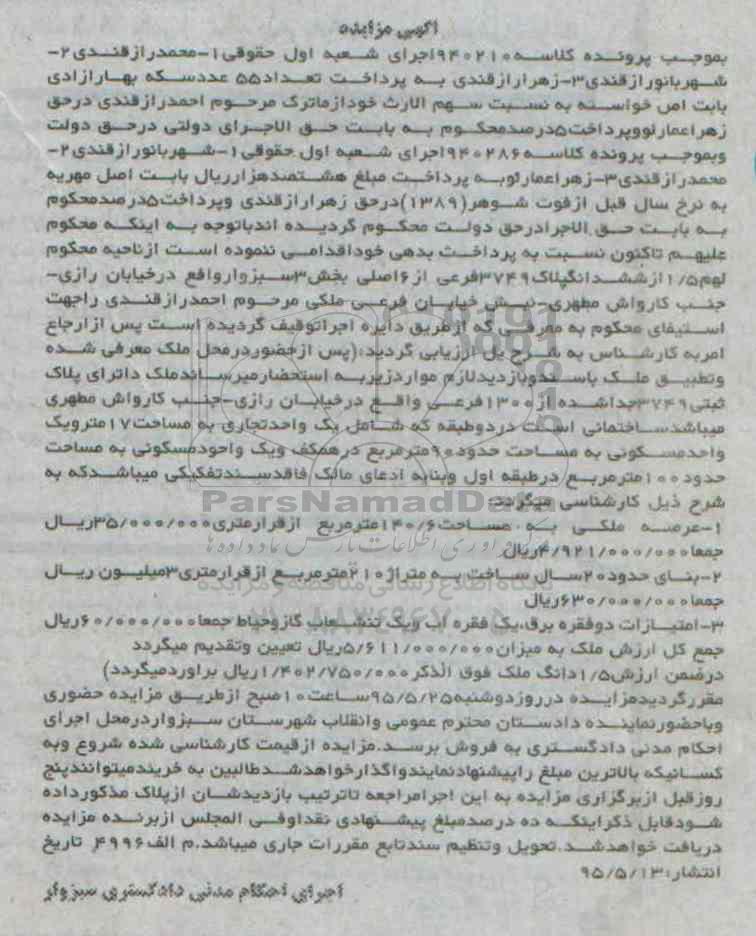 آگهی مزایده
بموجب پرونده کلاسه ۹۴۰۲۱۰اجرای شعبه اول حقوقی۱-محمدرازقندی۲-
شهربانورازقندی۳-زهرارازقندی به پرداخت تعداد۵۵ عددسکه بهارازادی
بابت اص خواسته به نسبت سهم الارث خودازماترک مرحوم احمدرازقندی درحق
زهراعمارلووپرداخت۵درصدمحکوم به بابت حق الاجرای دولتی درحق دولت
وبموجب پرونده کلاسه۹۴۰۲۸۶اجرای شعبه اول حقوقی۱-شهربانورازقندی۲-
محمدرازقندی۳-زهراعمارلوبه پرداخت مبلغ هشتصدهزارریال بابت اصل مهریه
به نرخ سال قبل ازفوت شوهر(۱۳۸۹)درحق زهرارازقندی وپرداخت۵درصدمحکوم
به بابت حق الاجرادرحق دولت محکوم گردیده اندباتوجه به اینکه محکوم
علیهم تاکنون نسبت به پرداخت بدهی خوداقدامی ننموده است ازناحیه محکوم
لهم۱/۵ازششدانگپلاک۳۷۴۹فرعی از۶اصلی بخش۳سبزوارواقع درخیابان رازی-
جنب کارواش مطهری-نبش خیابان فرعی ملکی مرحوم احمدرازقندی راجهت
استیفای محکوم به معرفی که ازطریق دایره اجراتوقیف گردیده است پس ازارجاع
امربه کارشناس به شرح یل ارزیابی گردید:(پس ازحضوردرمحل ملک معرفی شده
وتطبیق ملک باسندوبازدیدلازم مواردزیربه استحضارمیرساندملک داترای پلاک
ثبتی۳۷۴۹جداشده از۱۳۰۰فرعی واقع درخیابان رازی-جنب کارواش مطهری
میباشدساختمانی است دردوطبقه که شامل یک واحدتجاری به مساحت۱۷مترویک
واحدمسکونی به مساحت حدود۹۰مترمربع درهمکف ویک واحودمسکونی به مساحت
حدود۱۰۰مترمربع درطبقه اول وبنابه ادعای مالک فاقدسندتفکیکی میباشدکه به
شرح ذیل کارشناسی میگردد:
۱-عرصه ملکی به مساحت۱۴۰/۶مترمربع ازقرارمتری۳۵/۰۰۰/۰۰۰ریال
جمعا۴/۹۲۱/۰۰۰/۰۰۰ریال
۲-بنای حدود۲۰سال ساخت به متراژ۲۱۰مترمربع ازقرارمتری۳میلیون ریال
جمعا۶۳۰/۰۰۰/۰۰۰ریال
۳-امتیازات دوفقره برق،یک فقره آب ویک تنشعاب گازوحیاط جمعا۶۰/۰۰۰/۰۰۰ریال
جمع کل ارزش ملک به میزان۵/۶۱۱/۰۰۰/۰۰۰ریال تعیین وتقدیم میگردد
درضمن ارزش۱/۵دانگ ملک فوق الذکر۱/۴۰۲/۷۵۰/۰۰۰ریال براوردمیگردد)
مقررگردیدمزایده درروزدوشنبه۹۵/۵/۲۵ساعت۱۰صبح ازطریق مزایده حضوری
وباحضورنماینده دادستان محترم عمومی وانقلاب شهرستان سبزواردرمحل اجرای
احکام مدنی دادگستری به فروش برسد.مزایده ازقیمت کارشناسی شده شروع وبه
کسانیکه بالاترین مبلغ راپیشنهادنمایندواگذارخواهدشدطالبین به خریدمیتوانندپنج
روزقبل ازبرگزاری مزایده به این اجرامراجعه تاترتیب بازدیدشان ازپلاک مذکورداده
شودقابل ذکراینکه ده درصدمبلغ پیشنهادی نقداوفی المجلس ازبرنده مزایده
دریافت خواهدشد.تحویل وتنظیم سندتابع مقررات جاری میباشد.م الف۴۹۹۶ تاریخ
انتشار:۹۵/۵/۱۳
اجرای احکام مدنی دادگستری سبزوار
ParsNamadData